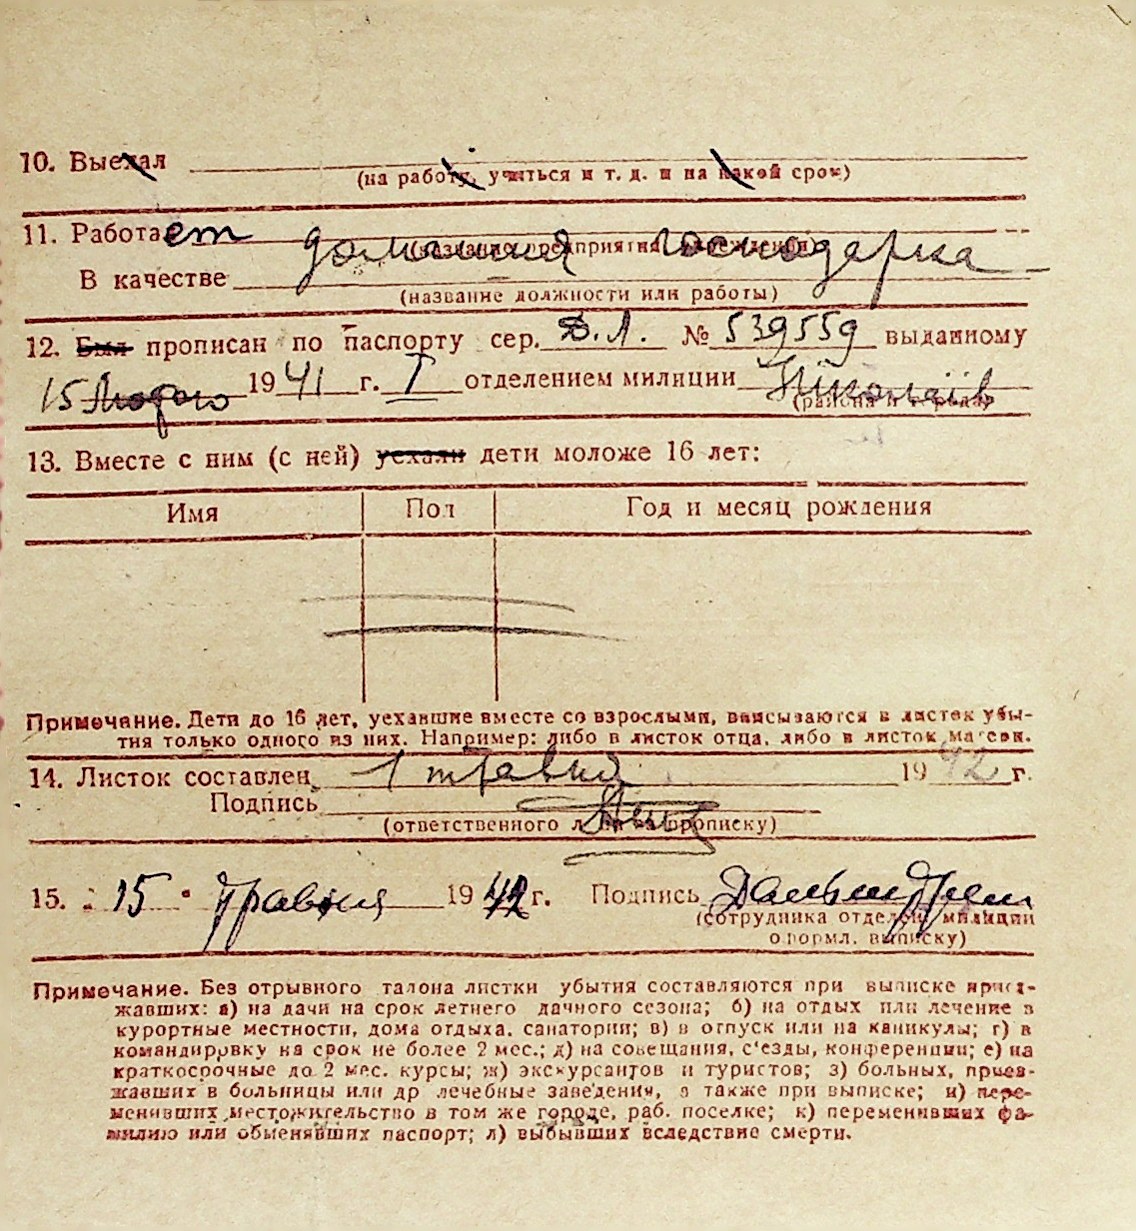 10. Выехал
(на работу, учиться и т. д. и на какой срок)
11. Работает домашня господарка
(название предприятия, учреждения)
В качестве
(название должности или работы)
12. Был прописан по паспорту сер. Д.Л. № 539559 выданному
15 Лютого 1941 г. I отделением милиции Ніколаїв
(района и города)
13. Вместе с ним (с ней) уехали дети моложе 16 лет:
Имя Пол Год и месяц рождения
Примечание. Дети до 16 лет, уехавшие вместе со взрослыми, вписываются в листок убы-
тия только одного из них. Например: либо в листок отца, либо в листок матери.
14. Листок составлен 1 травня 1942 г.
Подпись
(ответственного лица за прописку)
15. „ 15 " Травня 1942 г. Подпись
(сотрудника отдел. милиции
оформл. выписку)
Примечание. Без отрывного талона листки убытия составляются при выписке приез-
жавших: а) на дачи на срок летнего дачного сезона; б) на отдых или лечение в
курортные местности, дома отдыха, санатории; в) в отпуск или на каникулы; г) в
командировку на срок не более 2 мес.; д) на совещания, с'езды, конференции; е) на
краткосрочные до 2 мес. курсы; ж) экскурсантов и туристов; з) больных, приез-
жавших в больницы или др лечебные заведения, а также при выписке; и) пере-
менивших местожительство в том же городе, раб. поселке; к) переменивших фа-
милию или обменявших паспорт; л) выбывших вследствие смерти.